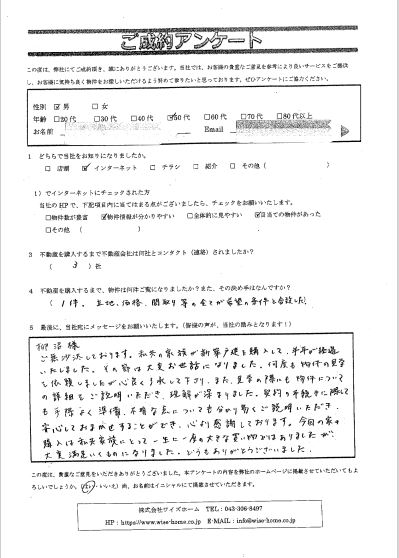 ご成約アンケート
この度は、弊社にてご成約頂き、誠にありがとうございます。当社では、お客様の貴重なご意見を参考により良いサービスをご提供
し、お客様に気持ち良く物件をお探しいただけるよう努めて参りたいと思っております。ぜひアンケートにご協力ください。
性別 ☑男 □女
年齢 □20代 □30代 □40代 ☑50代 □60代 □70代 □80代以上
お名前 Email
1 どちらで当社をお知りになりましたか。
□ 店頭 ☑ インターネット □ チラシ □ 紹介 □ その他（ ）
1）でインターネットにチェックされた方
当社のHPで、下記項目内に当てはまる点がございましたら、チェックをお願いいたします。
□物件数が豊富 ☑物件情報が分かりやすい □全体的に見やすい ☑目当ての物件があった
□その他（ ）
3 不動産を購入するまで不動産会社は何社とコンタクト（連絡）されましたか？
（ 3 ）社
4 不動産を購入するまで、物件は何件ご覧になりましたか？また、その決め手はなんですか？
（1件。土地、価格、間取り等の全てが希望の条件と合致した）
5 最後に、当社宛にメッセージをお願いいたします。（皆様の声が、当社の励みとなります！）
柳沼様
ご無沙汰しております。私共の家族が新築戸建を購入して、半年が経過
いたしました。その節は大変お世話になりました。何度も物件の見学
を依頼しましたが心良く了承して下り、また、見学の際にも物件について
の詳細をご説明いただき、理解が深まりました。契約の手続きに際して
も手際よく準備、不明な点についても分かり易くご説明いただき、
安心しておまかせすることができ、心より感謝しております。今回の家の
購入は私共家族にとって一生に一度の大きな買い物ではありましたが、
大変満足いくものになりました。どうもありがとうございました。
この度は、貴重なご意見をいただきありがとうございました。本アンケートの内容を弊社のホームページに掲載させていただいてもよ
ろしいでしょうか。（はい・いいえ）尚、お名前はイニシャルにて掲載させていただきます。
株式会社ワイズホーム TEL：043-306-8497
HP：https://www.wise-home.co.jp E-MAIL：info@wise-home.co.jp